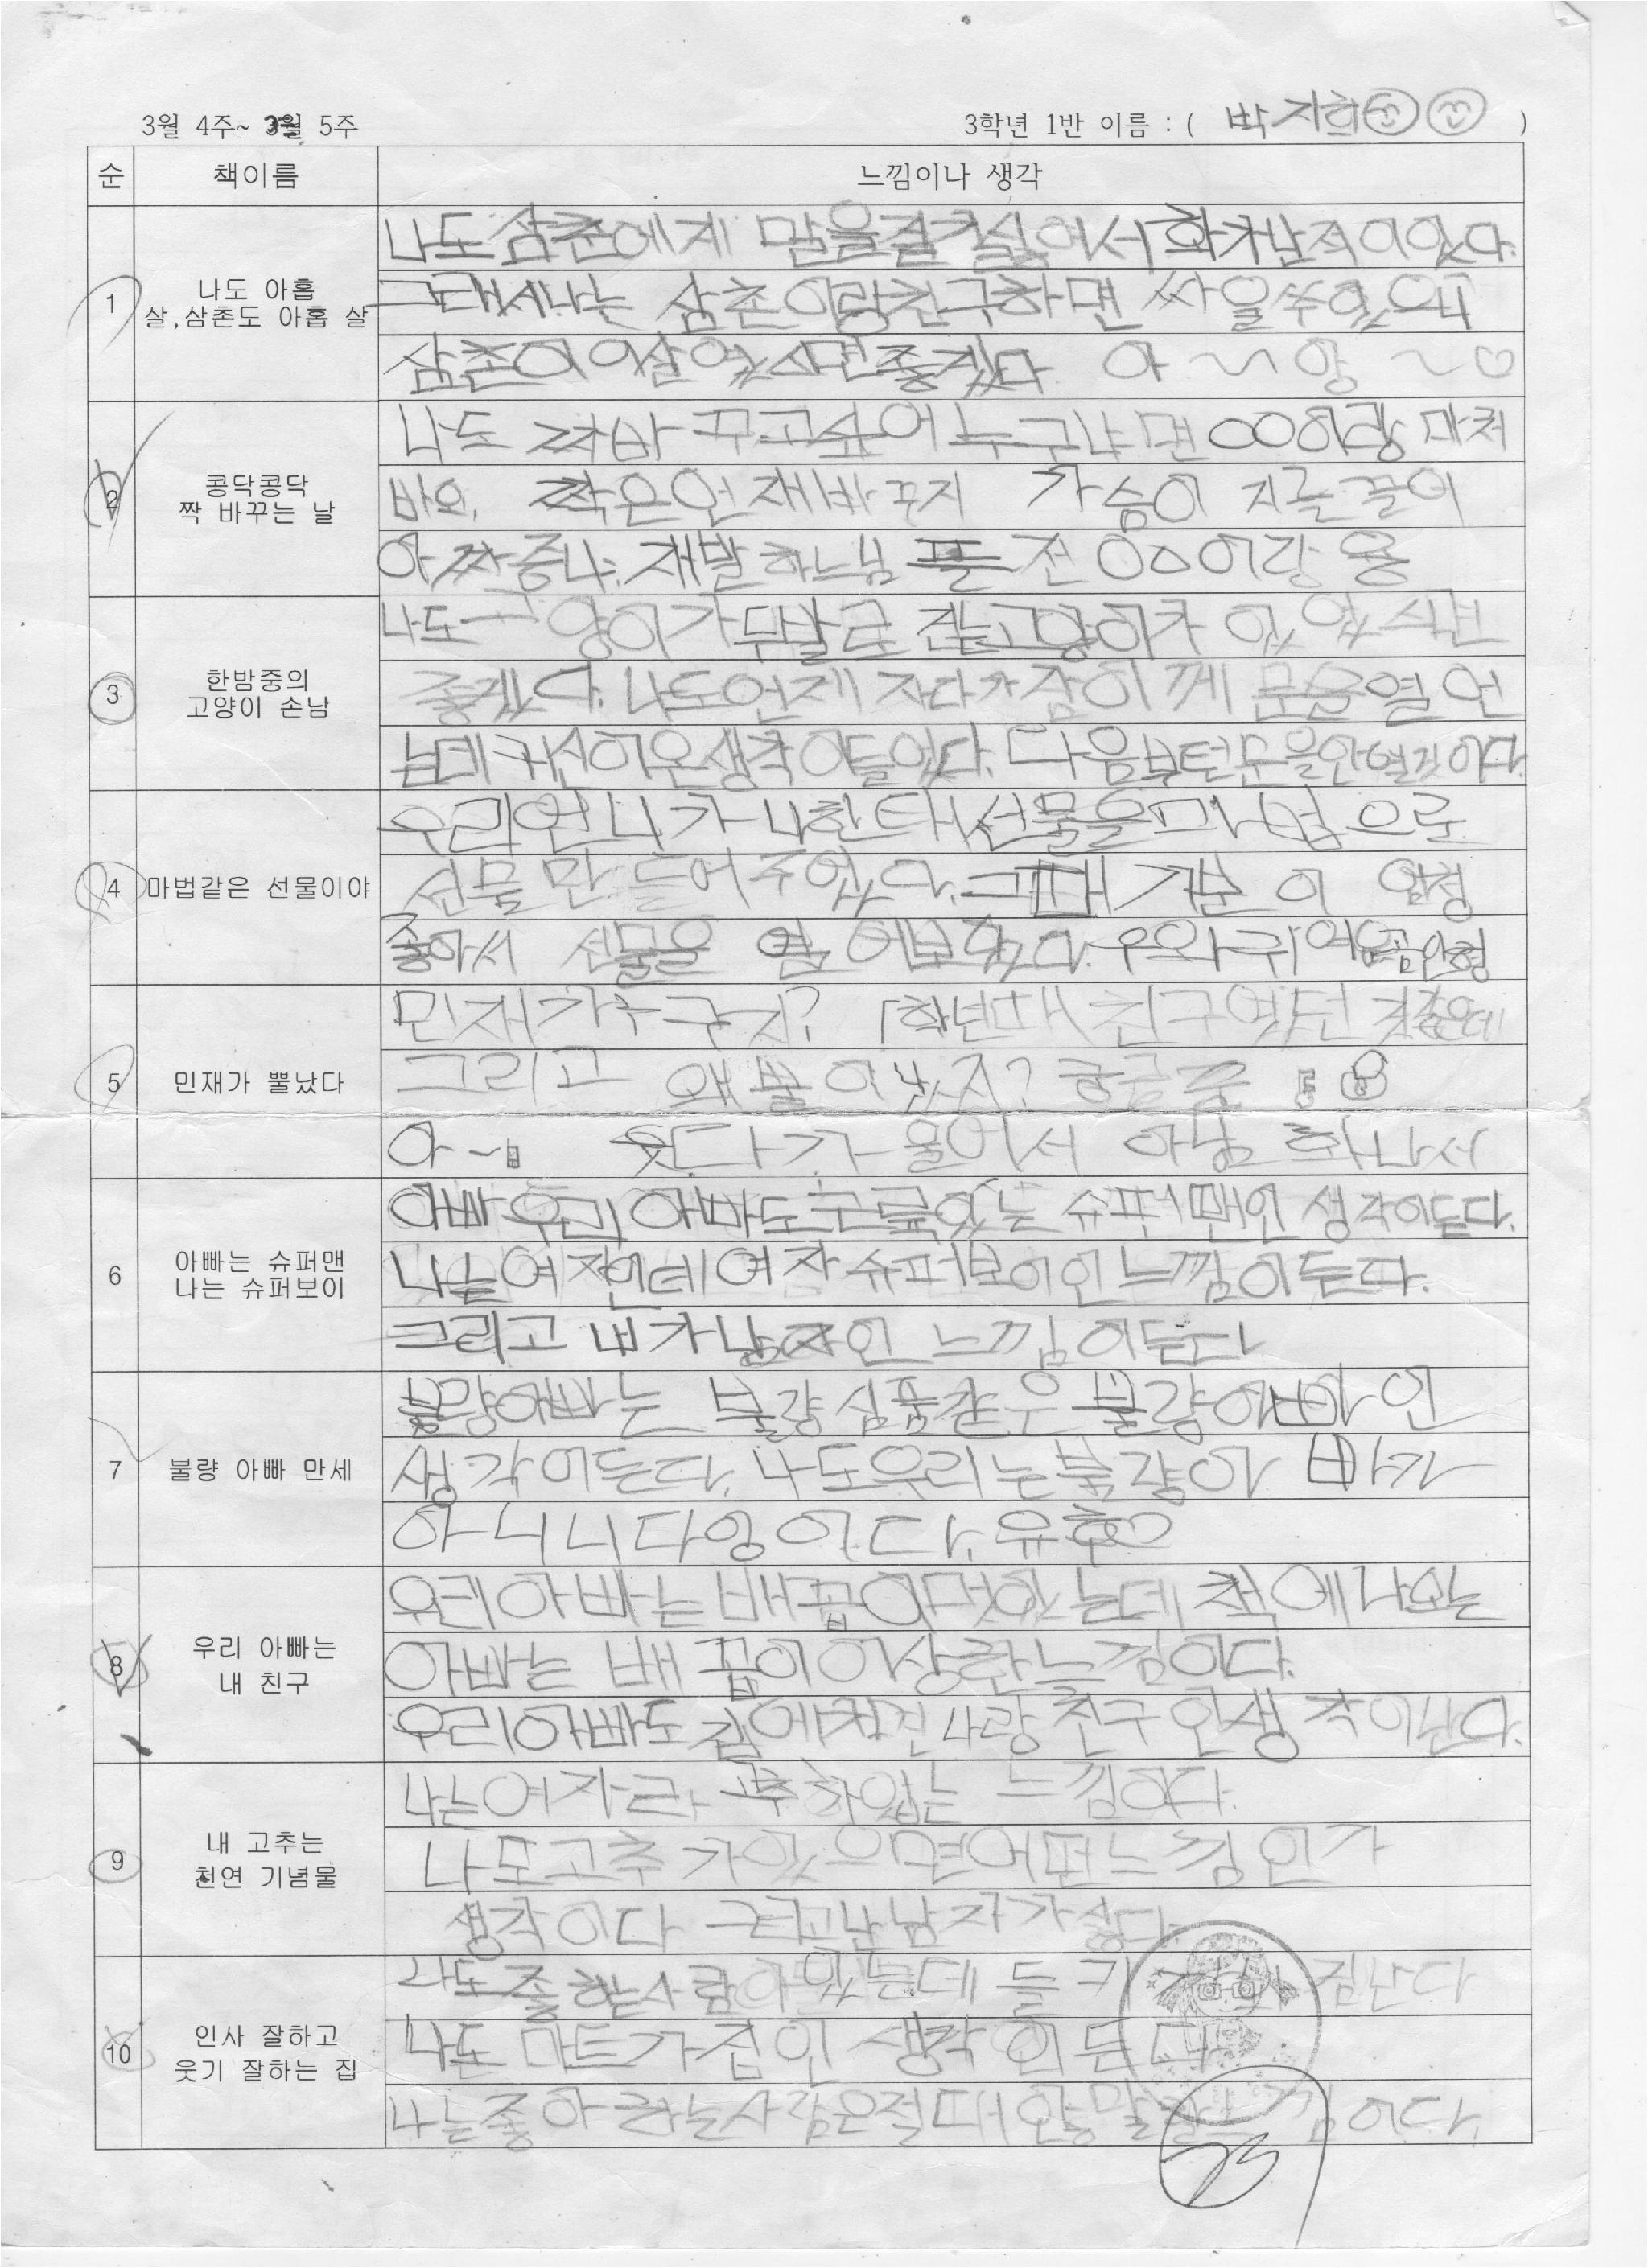 3월 4주~ 3월 5주
3학년 1반 이름 : ( 박지희 )
순 책이름 느낌이나 생각
1 나도 아홉
살,삼촌도 아홉 살
나도 삼촌에게 말을걸기싫어서 화가난적이있다.
그래서나는 삼촌이랑친구하면 싸울수있으니
삼촌이 어살였스면좋겠다. 아~~앙~♡
2 콩닥콩닥
짝 바꾸는 날
나도 짝바꾸고싶어 누구냐면 ○○이랑 마쳐
바요, 짝은언재바꾸지 가슴이 지글끌어
아짜증나. 재발하느님 플 전 ○○이랑 용
3 한밤중의
고양이 손남
나도 고양이가두발로 걷는고양이가 있었스면
좋겠다. 나도언제 자다가잠이깨 문을열언
는데 귀신이온생각이들었다. 다음부턴문을안열것이다.
4 마법같은 선물이야
우리언니가나한태선물을마법으로
선물만들어주었다.그때기분이 엄청
좋아서 선물을 열어보았다. 우와귀여운곰인형
5 민재가 뿔났다
민재가누구지? 1학년때친구였던것같은데
그리고 왜뿔이났지? 궁금중
아~ 웃다가울어서 아님 화나서
6 아빠는 슈퍼맨
나는 슈퍼보이
아빠우리아빠도근륙있는슈퍼맨인생각이든다.
나는여자인데여자슈퍼보이인느낌이든다.
그리고내가남자인느낌이든다
7 불량 아빠 만세
불량아빠는 불량심품같은불량아빠인
생각이든다. 나도우리는불량아빠가
아니니다앙이다. 유후
8 우리 아빠는
내 친구
우리아빠는배꼽이멋있는데 책에나오는
아빠는배꼽이이상한느낌이다.
우리아빠도집에처진나랑친구인생각이난다.
9 내 고추는
천연 기념물
나는여자라 고추하없는 느낌이다.
나모고추가있으면어떤느낌인가
생각이다 그리고난남자가싫다.
10 인사 잘하고
웃기 잘하는 집
나도좋하는사람이있는데 들키 낌난다
나도 마트가집인생각이든다
나는좋아하는사람은절때안말할 낌이다.